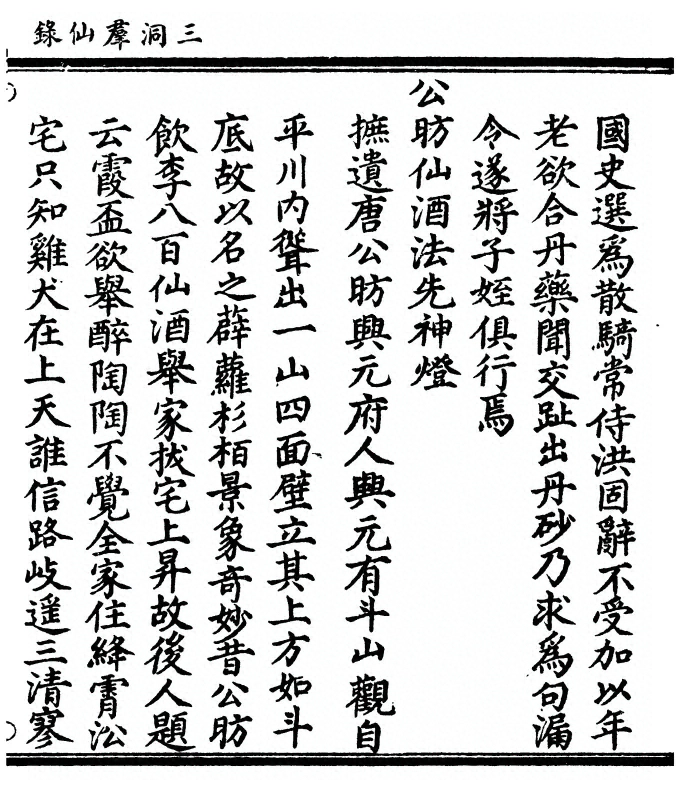 三洞羣仙錄
國史選爲散騎常侍洪固辭不受加以年
老欲合丹藥聞交趾出丹砂乃求爲句漏
令遂將子姪俱行焉
公昉仙酒法先神燈
摭遺唐公昉興元府人興元有斗山觀自
平川內聳出一山四面壁立其上方如斗
底故以名之薜蘿杉栢景象奇妙昔公昉
飲李八百仙酒舉家拔宅上昇故後人題
云霞盃欲舉醉陶陶不覺全家住絳霄㳂
宅只知雞犬在上天誰信路歧遥三清寥